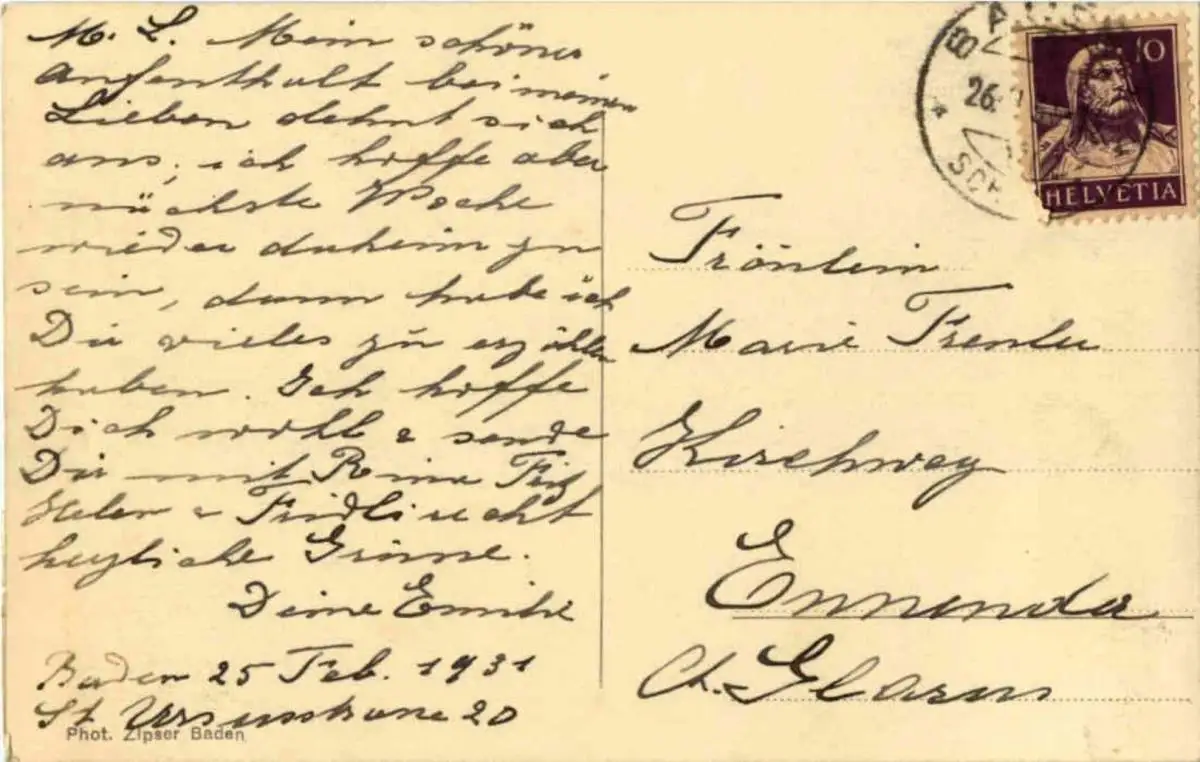 M. L. Mein schöner
Aufenthalt bei meinen
Lieben dehnt sich
aus, ich hoffe aber
nächste Woche
wieder daheim zu
sein, dann habe ich
Dir vieles zu erzählen
haben. Ich hoffe
Dich wohl & sende
Dir mit Fritz
& Fridli recht
herzliche Grüsse.
Deine Emilie
Baden 25 Feb. 1931
St. Ursusstrasse 20
Phot. Zipser Baden
BA
26.
SCH
10
HELVETIA
Fräulein
Marie
Kirchweg
Ennenda
Ct. Glarus